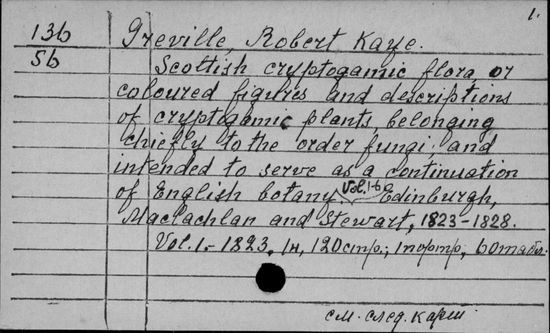 1.
13б Greville, Robert Kaye.
5б Scottish cryptogamic flora, or
coloured figures and descriptions
of cryptogamic plants, belonging
chiefly to the order fungi; and
intended to serve as a continuation
of English botany. Vol. 1-6 Edinburgh,
Maclachlan and Stewart, 1823-1828.
Vol. 1.- 1823, 120 стр.; 1 портр., 60 табл.
см. след. карт.